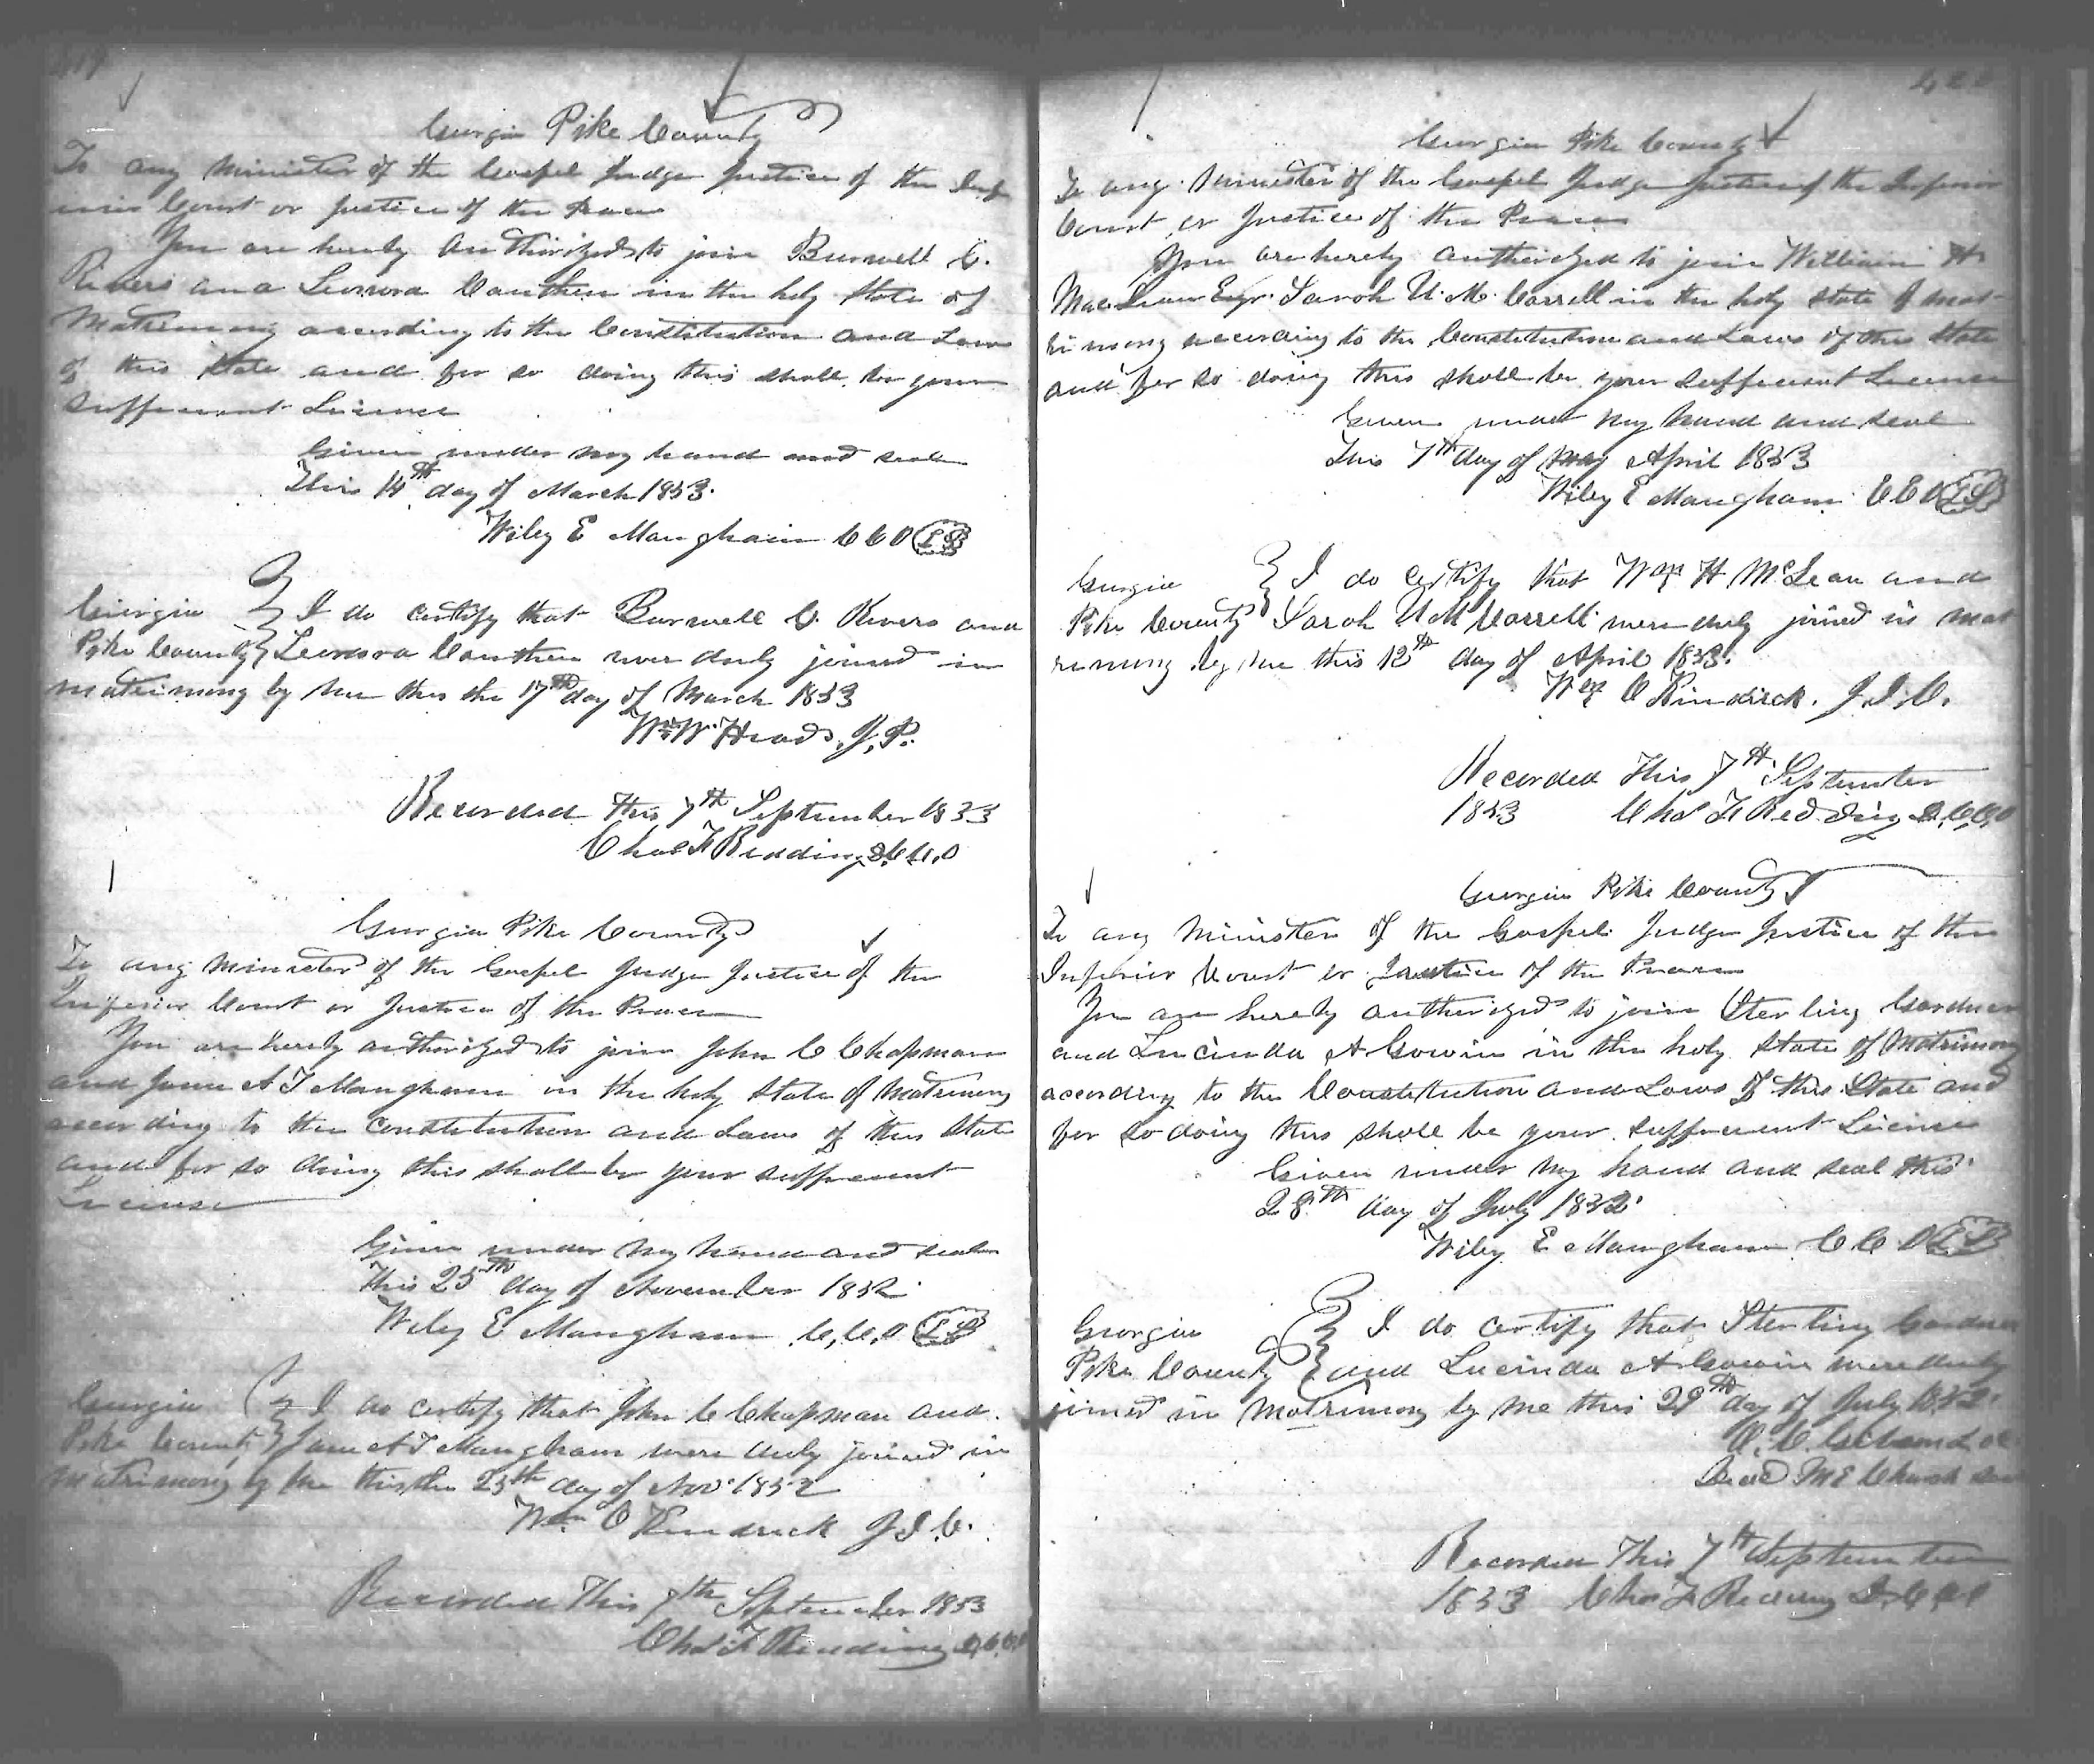 Georgia Pike County
To any Minister of the Gospel Judge Justice of the Infe
rior Court or Justice of the Peace
You are hereby authorized to join Burwell C.
Rivers and Leonora Cauthen in the holy State of
Matrimony according to the Constitution and Laws
of this State and for so doing this shall be your
sufficient License
Given under my hand and seal
This 14th day of March 1853.
Wiley E Mangham C C O L S
Georgia } I do certify that Burwell C. Rivers and
Pike County } Leonora Cauthen were duly joined in
matrimony by me this the 17th day of March 1853
Wm W. Head, J. P.
Recorded this 7th September 1853
Chas F Redding D. C. C. O
Georgia Pike County
To any Minister of the Gospel Judge Justice of the
Inferior Court or Justice of the Peace
You are hereby authorized to join John C Chapman
and Jane A T Mangham in the holy State of Matrimony
according to the Constitution and Laws of this State
and for so doing this shall be your sufficient
License
Given under my hand and seal
this 25th day of November 1852
Wiley E Mangham C, C, O L S
Georgia } I do certify that John C Chapman and
Pike County } Jane A T Mangham were duly joined in
Matrimony by me this the 25th day of Nov. 1852
Wm O Kendrick J I C.
Recorded This 7th September 1853
Chas F Redding D, C C, O
Georgia Pike County
To any Minister of the Gospel Judge Justice of the Inferior
Court or Justice of the Peace
You are hereby authorized to join William H
MacLean Sarah U. M. Carrell in the holy State of mat-
rimony according to the Constitution and Laws of this State
and for so doing this shall be your sufficient License
Given under my hand and seal
This 7th day of may April 1853
Wiley E Mangham C C O L S
Georgia } I do certify that Wm H McLean and
Pike County } Sarah U M Carrell were duly joined in mat
rimony by me this 12th day of April 1853.
Wm O Kindrick. J. I. C.
Recorded This 7th September
1853 Chas F Redding D. C. C, O
Georgia Pike County
To any Minister of the Gospel Judge Justice of the
Inferior Court or Justice of the Peace
You are hereby authorized to join Sterling Gardner
and Lucinda A Gowin in the holy State of Matrimony
according to the Constitution and Laws of this State and
for so doing this shall be your sufficient License
Given under my hand and seal this
28th day of July 1852
Wiley E Mangham C. C. O L S
Georgia } I do certify that Sterling Gardner
Pike County } and Lucinda A Gowin were duly
joined in Matrimony by me this 29th day of July 1852
M E Church
Recorded This 7th September
1853 Chas F Redding D. C C O